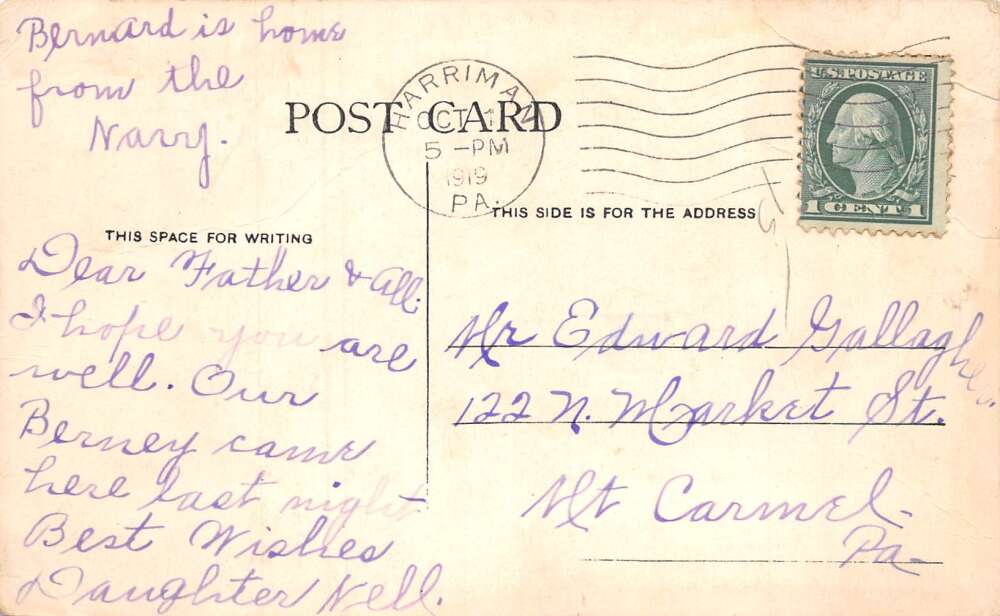 Bernard is home
from the
Navy.
POST CARD
HARRIMAN
OCT
5 -PM
1919
PA.
U.S. POSTAGE
1 CENT 1
THIS SPACE FOR WRITING
THIS SIDE IS FOR THE ADDRESS
Dear Father & All.
I hope you are
well. Our
Berney came
here last night
Best Wishes
Daughter Nell.
Mr Edward Gallagher.
122 N. Market St.
Mt Carmel.
Pa-